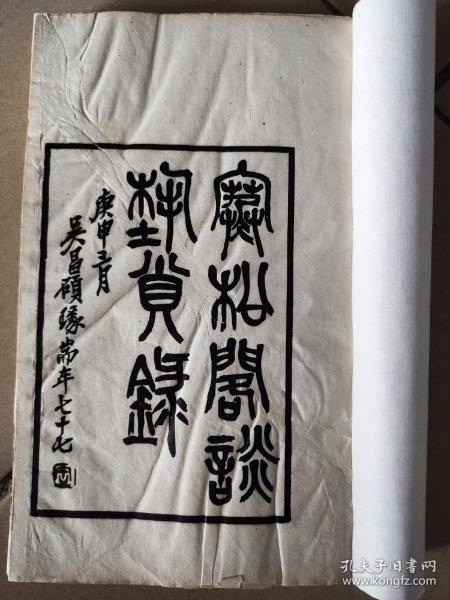 寒松閣談
埶賞錄
庚申三月
吳昌碩篆耑年七十七
孔夫子旧书网
www.kongfz.com